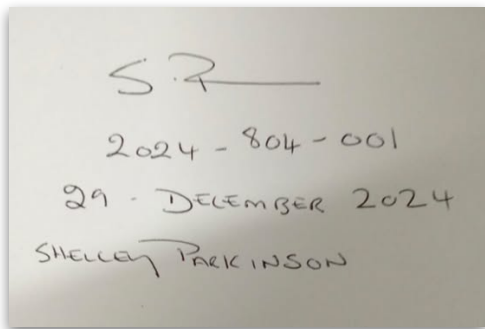 S.P
2024-804-001
29 - DECEMBER 2024
SHELLEY PARKINSON